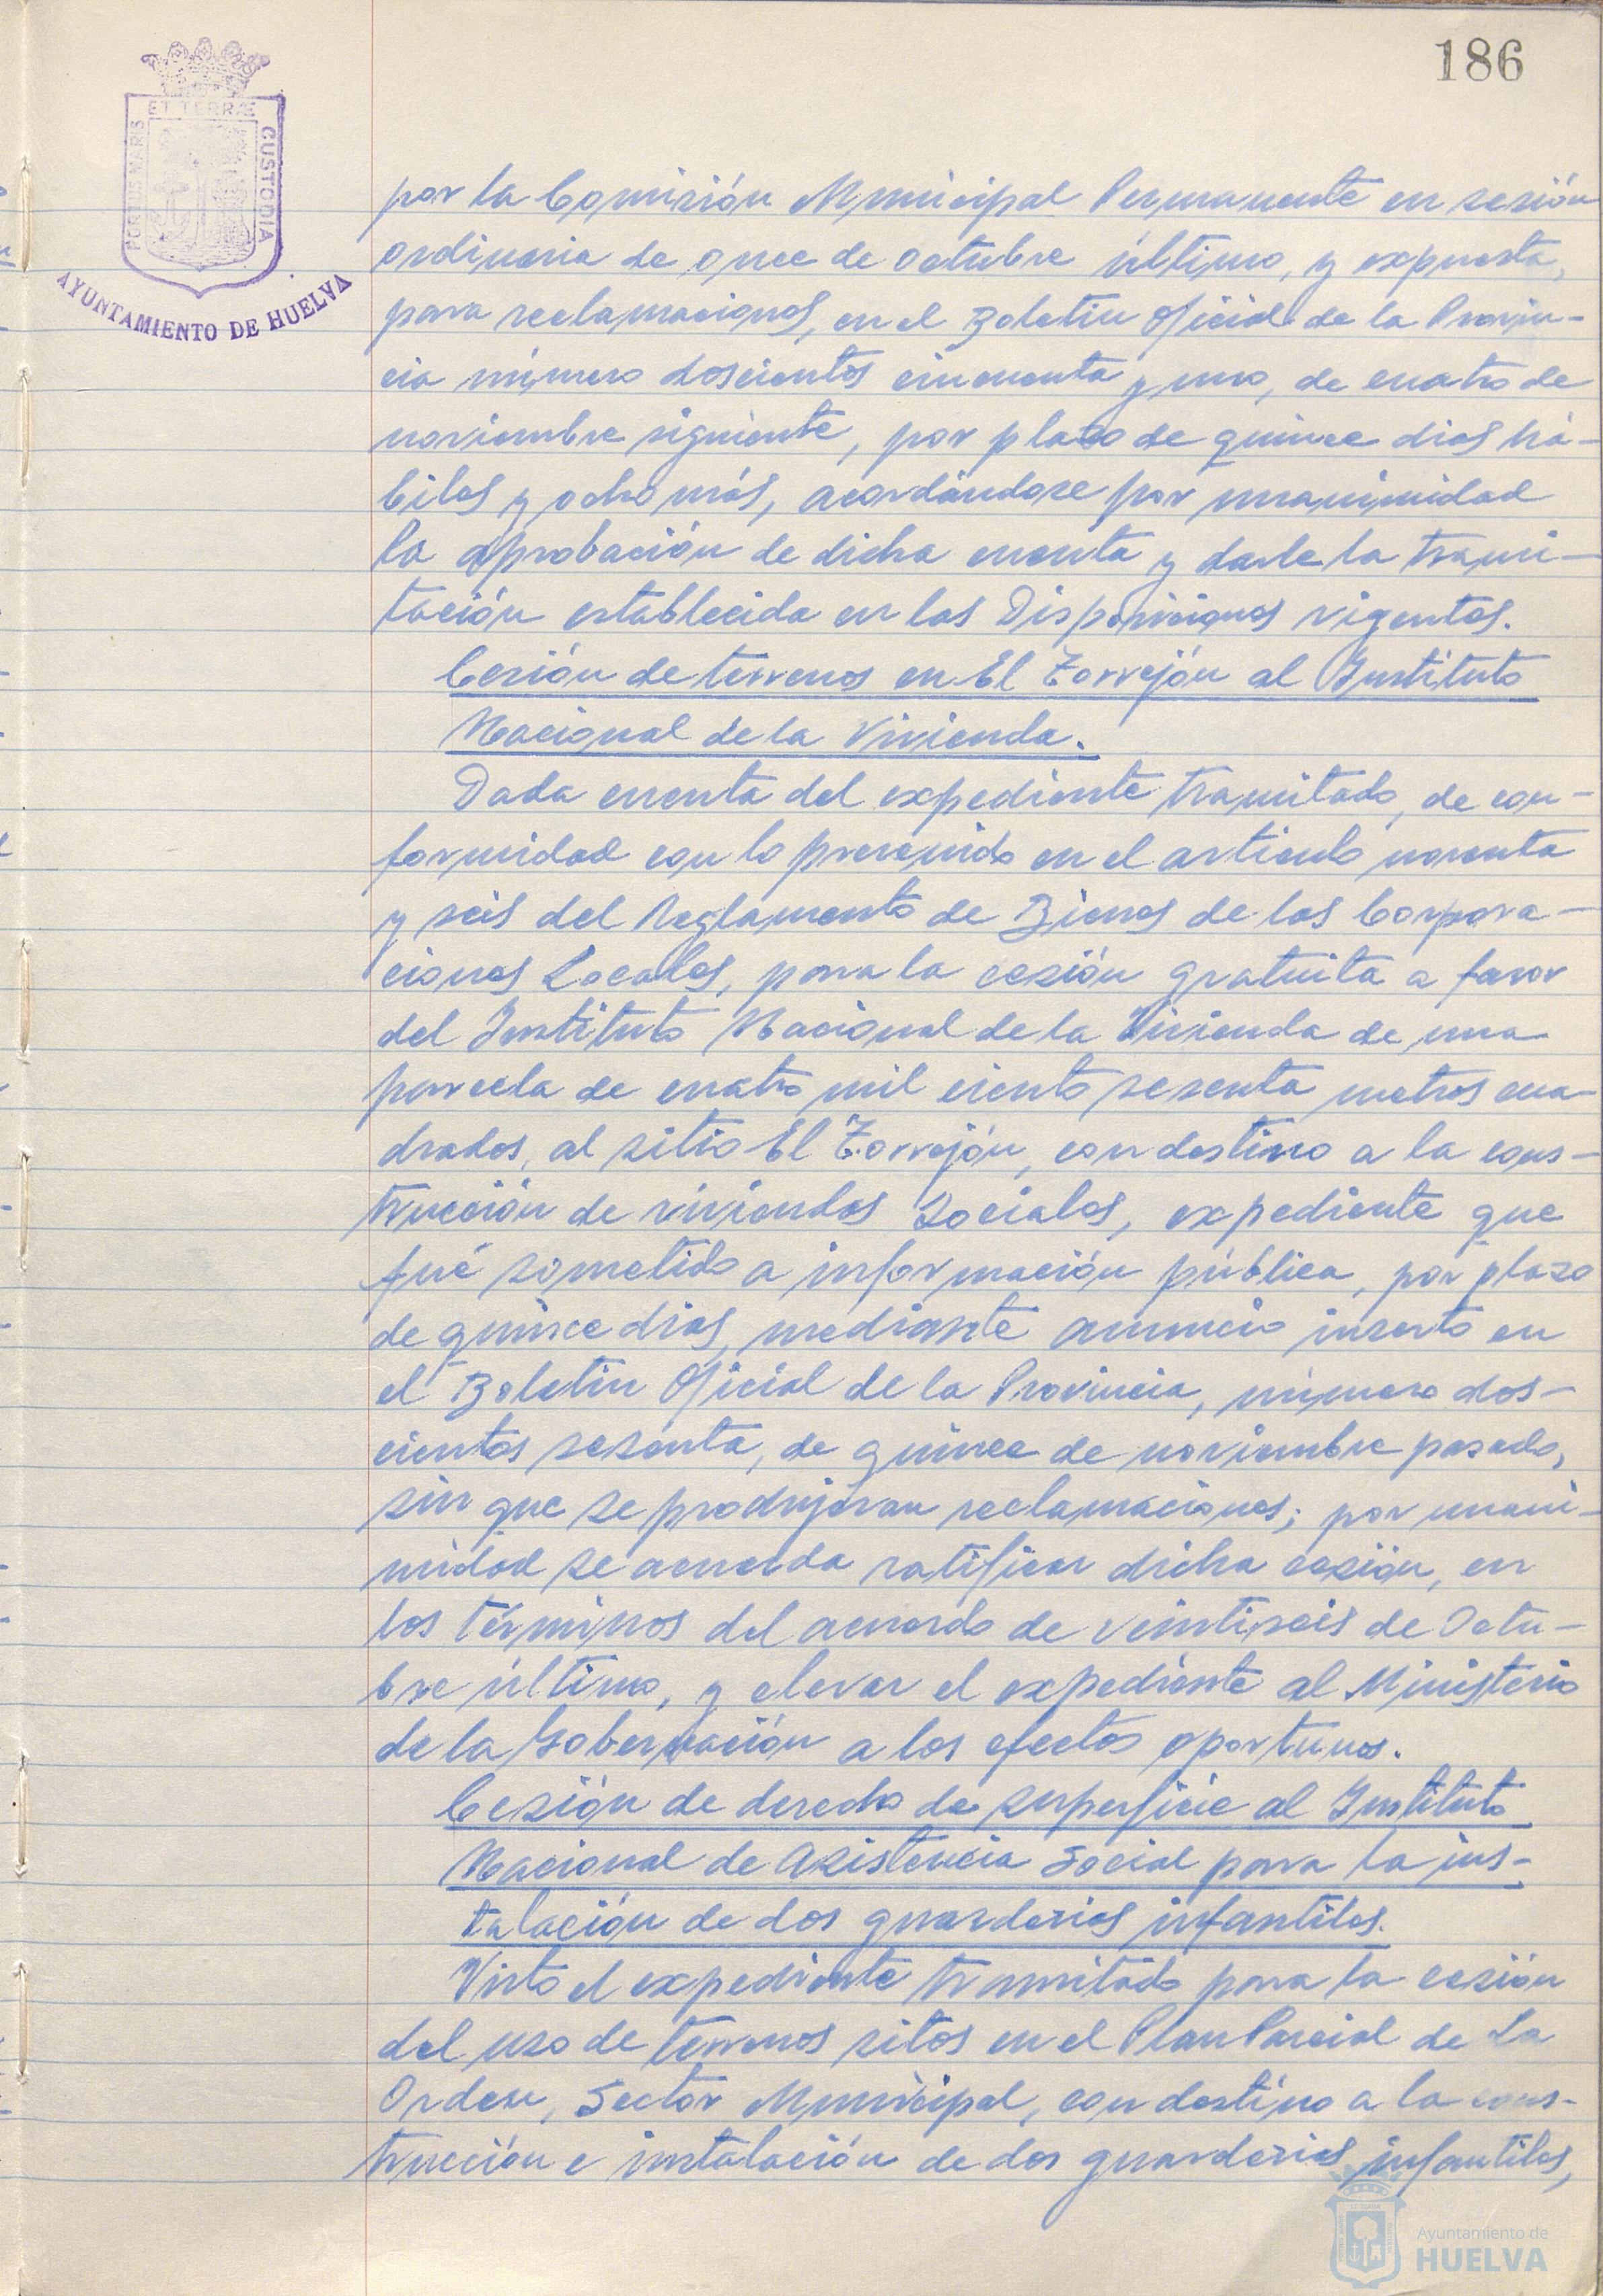 186
ET TERRÆ
PORTUS MARIS
CUSTODIA
AYUNTAMIENTO DE HUELVA
por la Comisión Municipal Permanente en sesión
ordinaria de once de octubre último, y expuesta,
para reclamaciones, en el Boletin Oficial de la Provin-
cia número doscientos cincuenta y uno, de cuatro de
noviembre siguiente, por plazo de quince dias há-
biles y ocho más, acordándose por unanimidad
la aprobación de dicha cuenta y darle la trami-
tación establecida en las Disposiciones vigentes.
Cesión de terrenos en El Torrejón al Instituto
Nacional de la Vivienda.
Dada cuenta del expediente tramitado, de con-
formidad con lo prevenido en el articulo noventa
y seis del Reglamento de Bienes de las Corpora-
ciones Locales, para la cesión gratuita a favor
del Instituto Nacional de la Vivienda de una
parcela de cuatro mil ciento sesenta metros cua-
drados, al sitio El Torrejón, con destino a la cons-
trucción de viviendas Sociales, expediente que
fué sometido a información pública, por plazo
de quince dias, mediante anuncio inserto en
el Boletin Oficial de la Provincia, número dos-
cientos sesenta, de quince de noviembre pasado,
sin que se produjeran reclamaciones; por unani-
midad se acuerda ratificar dicha cesión, en
los términos del acuerdo de veintiseis de Octu-
bre último, y elevar el expediente al Ministerio
de la Gobernación a los efectos oportunos.
Cesión de derecho de superficie al Instituto
Nacional de Asistencia Social para la ins-
talación de dos guarderias infantiles.
Visto el expediente tramitado para la cesión
del uso de terrenos sitos en el Plan Parcial de La
Orden, Sector Municipal, con destino a la cons-
trucción e instalación de dos guarderias infantiles,
Ayuntamiento de
HUELVA